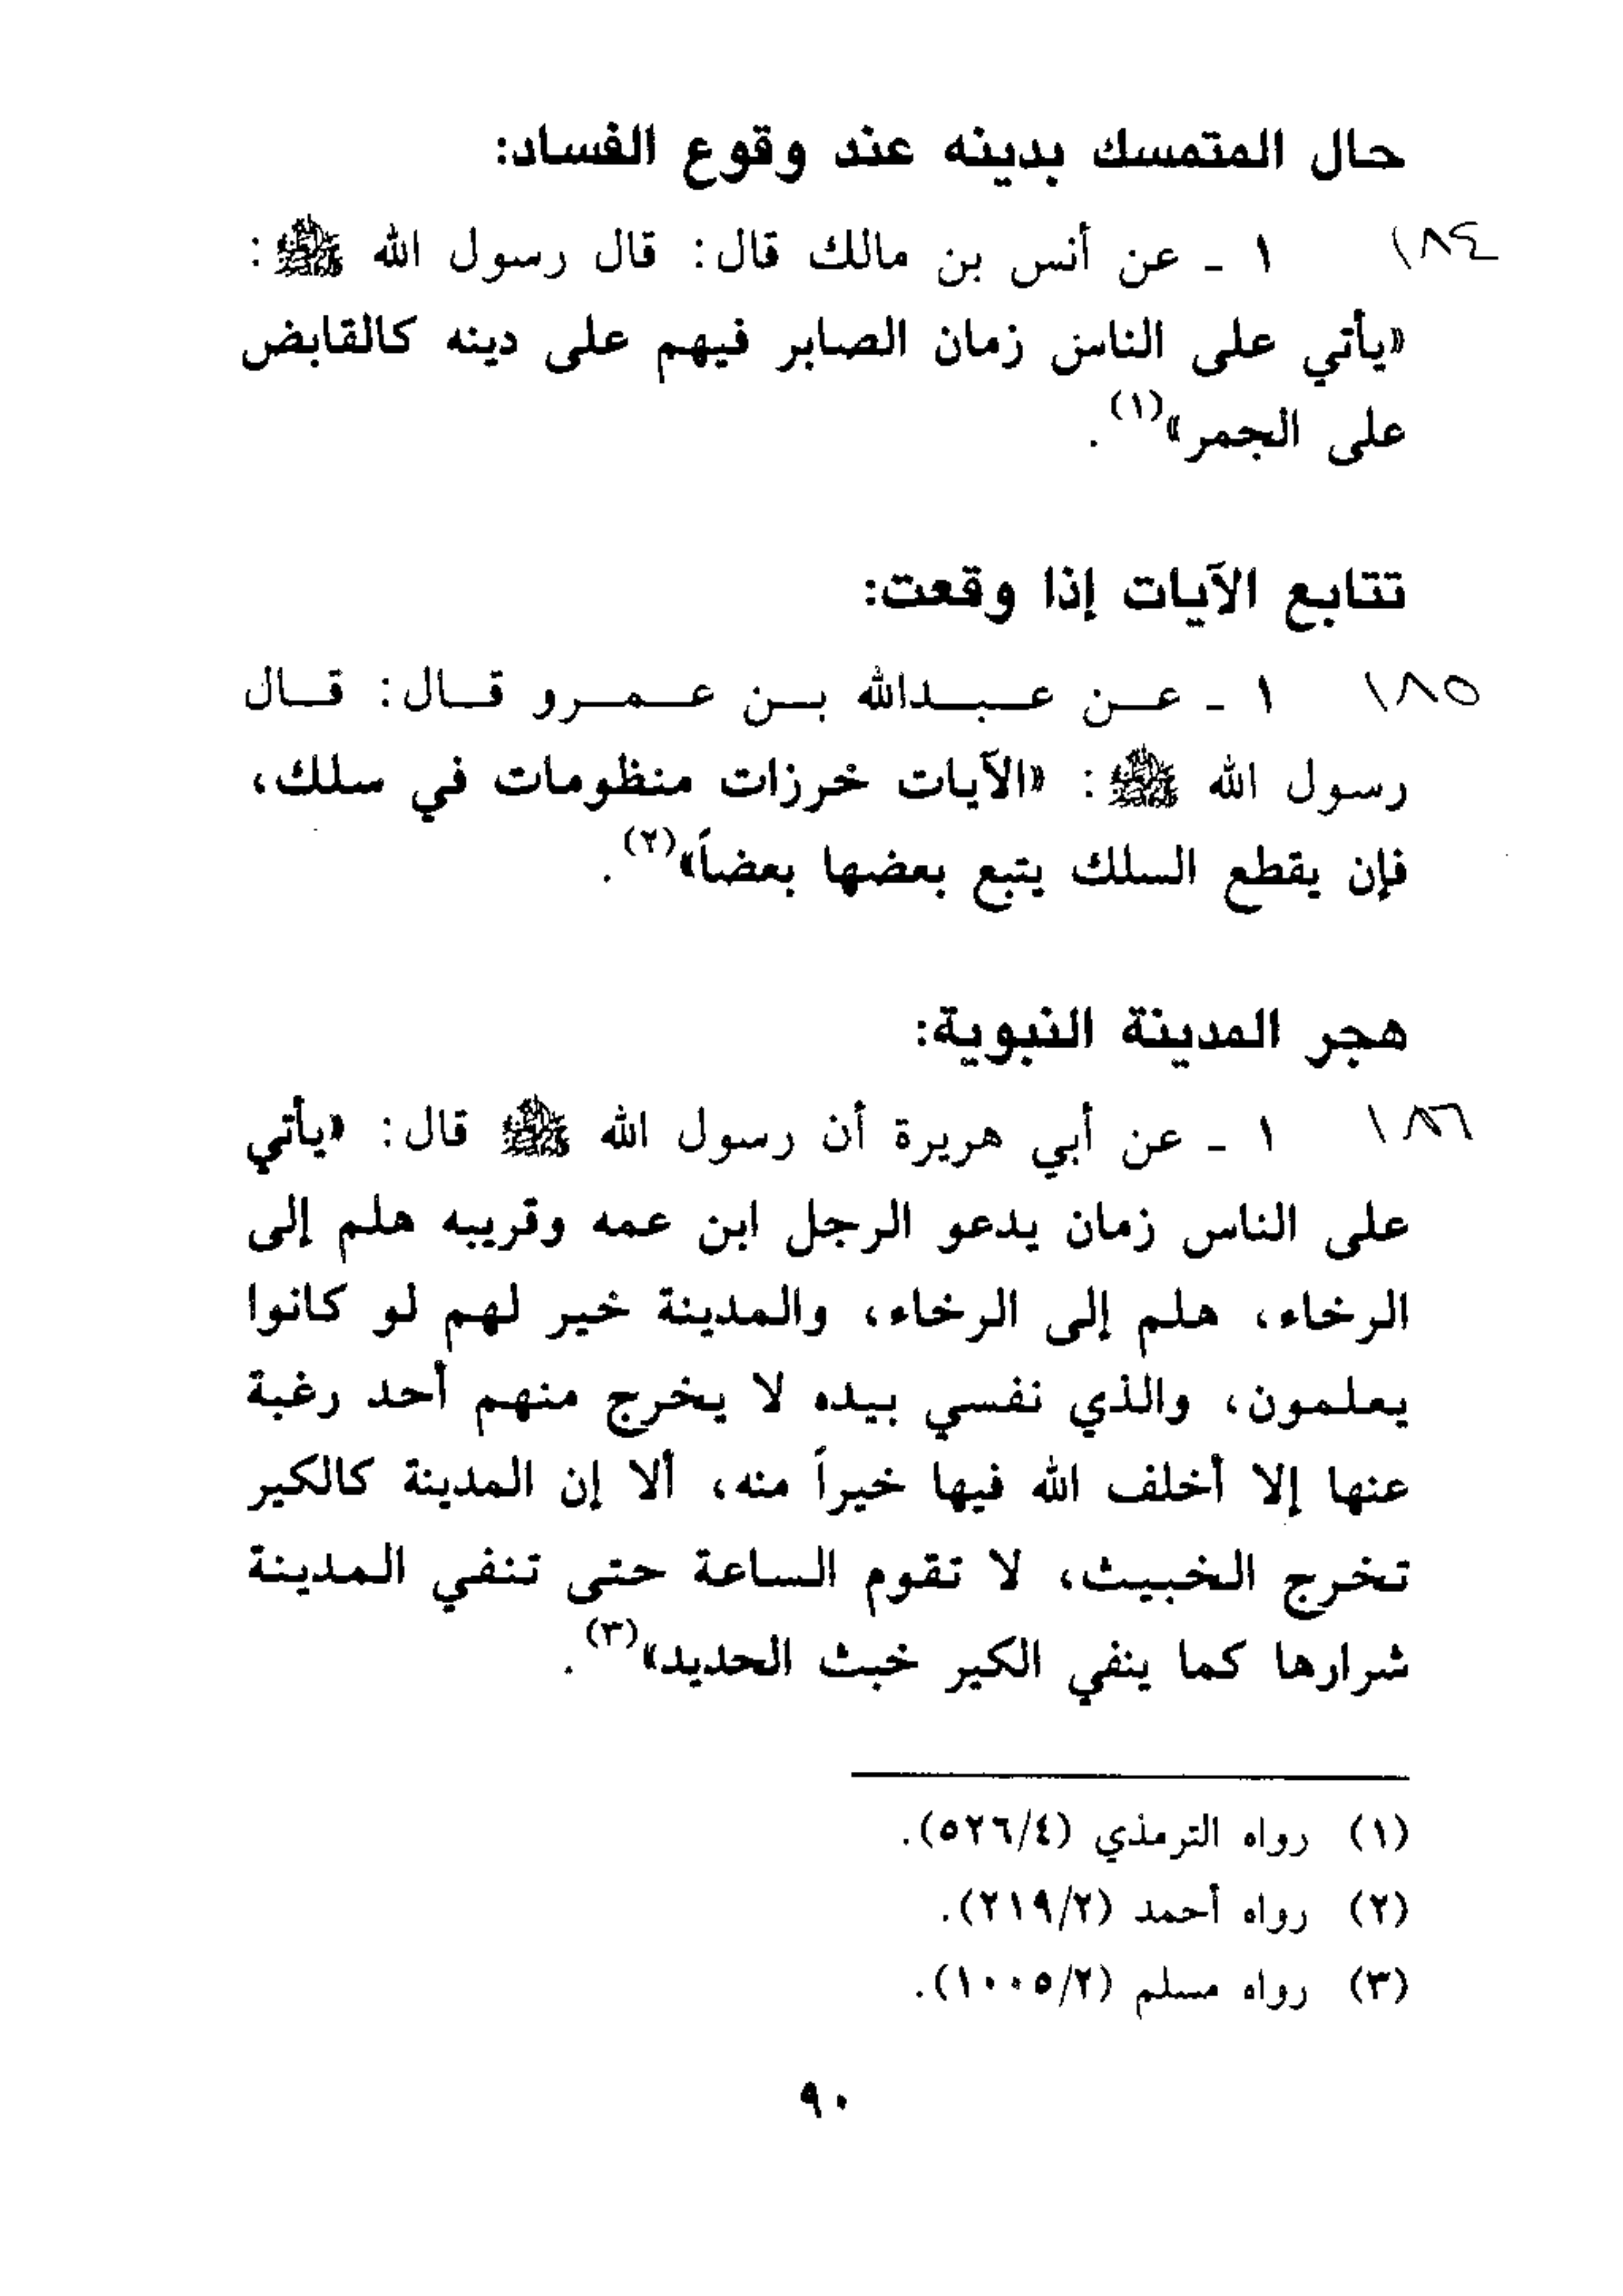 حال المتمسك بدينه عند وقوع الفساد:
١٨٤ ١ ـ عن أنس بن مالك قال: قال رسول الله ﷺ:
«يأتي على الناس زمان الصابر فيهم على دينه كالقابض
على الجمر»(١).
تتابع الآيات إذا وقعت:
١٨٥ ١ ـ عن عبدالله بن عمرو قال: قال
رسول الله ﷺ: «الآيات خرزات منظومات في سلك،
فإن يقطع السلك يتبع بعضها بعضاً»(٢).
هجر المدينة النبوية:
١٨٦ ١ ـ عن أبي هريرة أن رسول الله ﷺ قال: «يأتي
على الناس زمان يدعو الرجل ابن عمه وقريبه هلم إلى
الرخاء، هلم إلى الرخاء، والمدينة خير لهم لو كانوا
يعلمون، والذي نفسي بيده لا يخرج منهم أحد رغبة
عنها إلا أخلف الله فيها خيراً منه، ألا إن المدينة كالكير
تخرج الخبيث، لا تقوم الساعة حتى تنفي المدينة
شرارها كما ينفي الكير خبث الحديد»(٣).
(١) رواه الترمذي (٥٢٦/٤).
(٢) رواه أحمد (٢١٩/٢).
(٣) رواه مسلم (١٠٠٥/٢).
٩٠